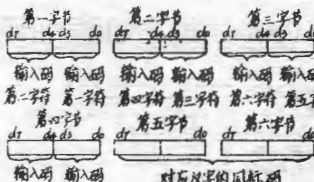 第一字节 第二字节 第三字节
d₇ d₄ d₃ d₀ d₇ d₄ d₃ d₀ d₇ d₄ d₃ d₀
输入码 输入码 输入码 输入码 输入码 输入码
第二字符 第一字符 第四字符 第三字符 第六字符 第五字
第四字节 第五字节 第六字节
d₇ d₄ d₃ d₀ d₇ d₀ d₇ d₀
输入码 输入码 对应汉字的国标码